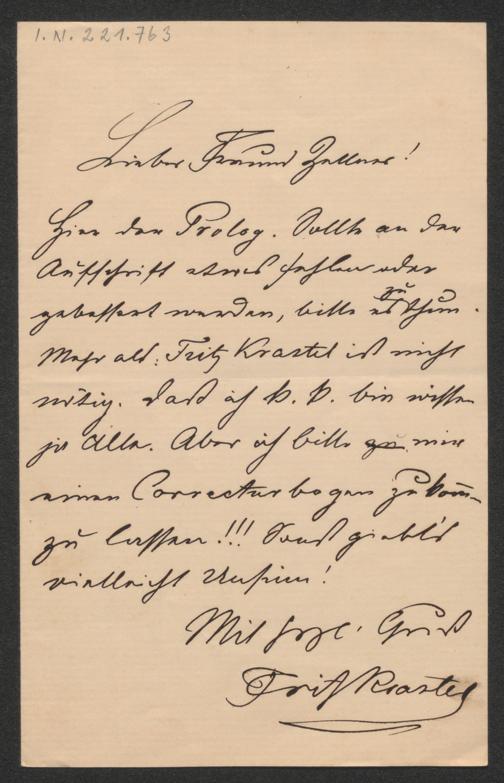 I. N. 221.763
Lieber Freund Zellner!
Hier der Prolog. Sollte an der
Aufschrift etwas fehlen oder
gebessert werden, bitte es zu thun.
Mehr als: Fritz Krastel ist nicht
nötig. Daß ich k. k. bin wissen
ja Alle. Aber ich bitte zu mir
einen Correcturbogen zukom-
zu lassen!!! Sonst giebt's
vielleicht Unsinn!
Mit herzl. Gruß
Fritz Krastel